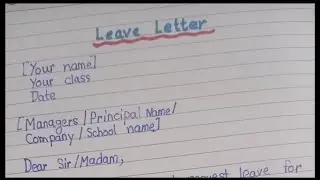 Leave Letter
[Your name]
Your class
Date
[Managers/Principal Name/
Company/School name]
Dear Sir/Madam,
request leave for